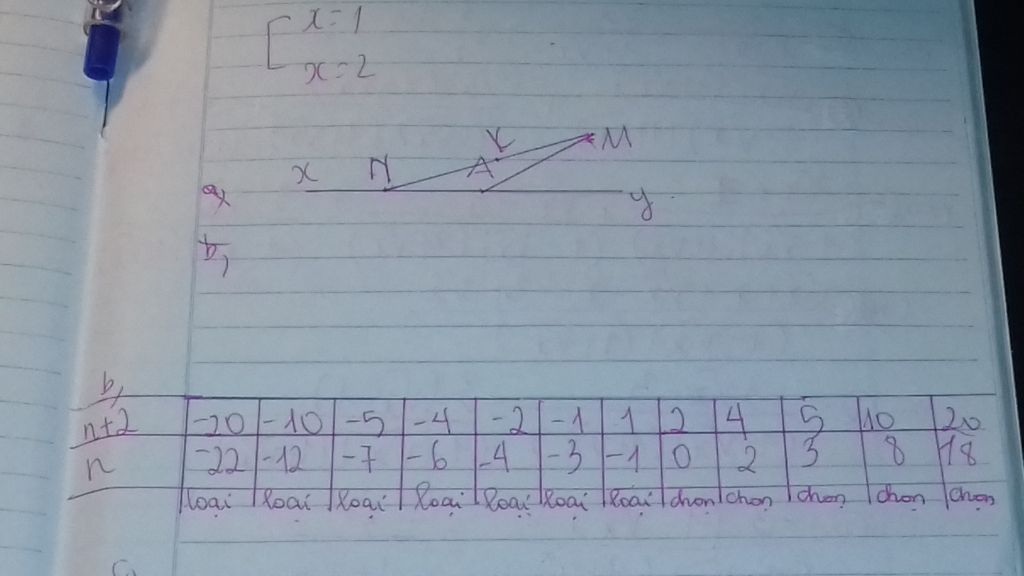 x=1
x=2
K M
x N A
a, y
b,
b,
n+2 -20 -10 -5 -4 -2 -1 1 2 4 5 10 20
n -22 -12 -7 -6 -4 -3 -1 0 2 3 8 18
loại loại loại loại loại loại loại chọn chọn chọn chọn chọn